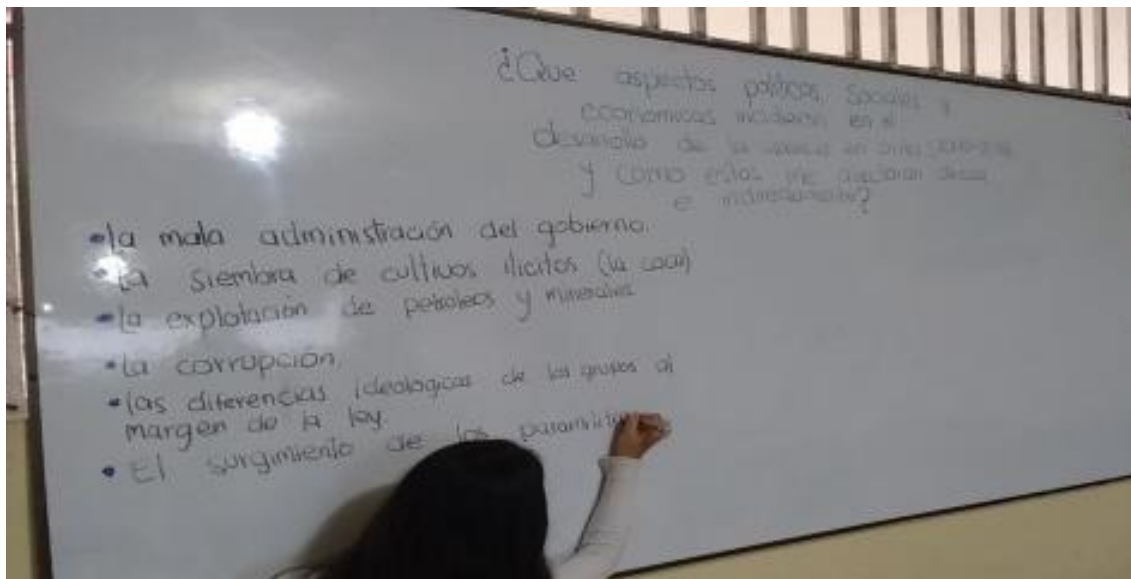 ¿Que aspectos politicos, Sociales y
economicos incidieron en el
desarrollo de la
y como estos me afectaron directa
e indirectamente?
•la mala administración del gobierno.
•La siembra de cultivos ilicitos (la coca)
•la explotación de petroleos y minerales
•La corrupción.
•las diferencias ideologicas de los grupos al
margen de la ley.
•El surgimiento de los